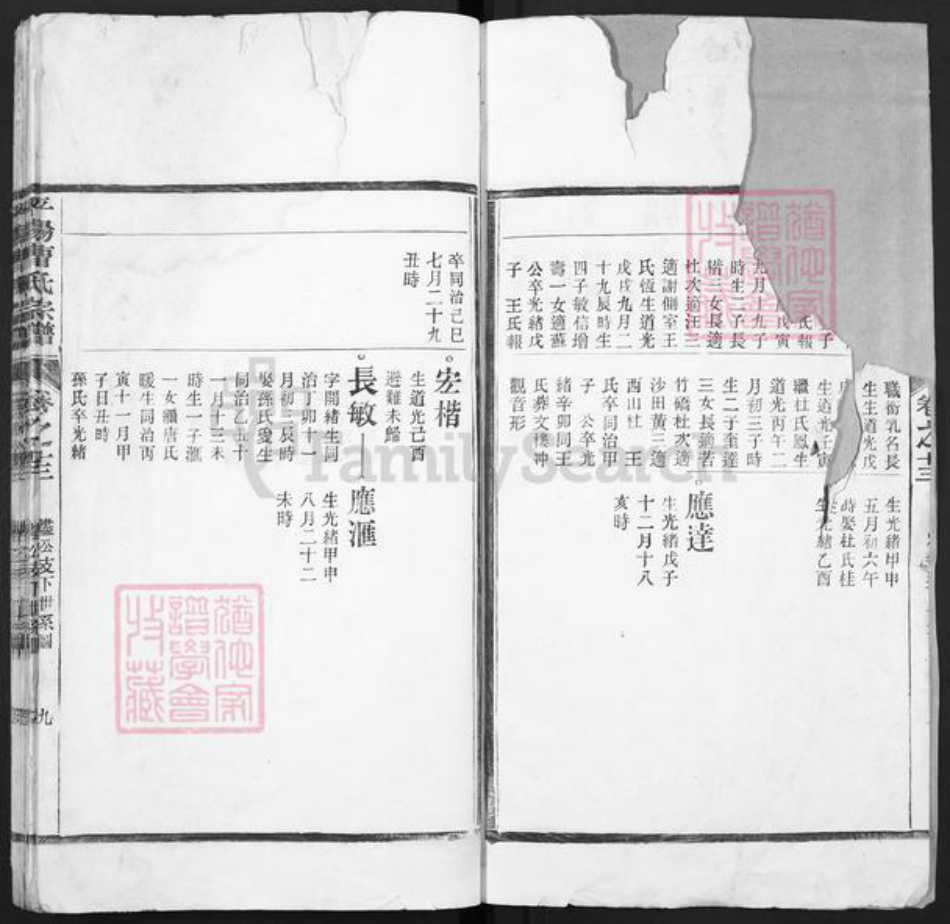 子
氏報
戊寅
九月十九子
時生二子長
楷三女長適
杜次適汪三
適謝側室王
氏恆生道光
戊戌九月二
十九辰時生
四子敏信增
壽一女適蘇
公卒光緒戊
子 王氏報
職銜乳名長
生生道光戊
生道光壬寅
繼杜氏鳳生
道光丙午二
月初三子時
生二子奎達
三女長適苦
竹礄杜次適
沙田黃三適
西山杜 王
氏卒同治甲
子 公卒光
緒辛卯同王
氏葬文樓沖
觀音形
生光緒甲申
五月初六午
時娶杜氏桂
生光緒乙酉
應達
生光緒戊子
十二月十八
亥時
卷之十三
卒同治己巳
七月二十九
丑時
宏楷
生道光己酉
避難未歸
長敏
字開緒生同
治丁卯一
月初三辰時
娶孫氏愛生
同治乙丑十
一月十三未
時生一子滙
一女繼唐氏
暖生同治丙
寅十一月甲
子日丑時
孫氏卒光緒
應滙
生光緒甲申
八月二十二
未時
平陽曹氏宗譜
卷之十三
鑑公支下世系圖
九
猶他家
譜學會
收藏
猶他家
譜學會
收藏
FamilySearch